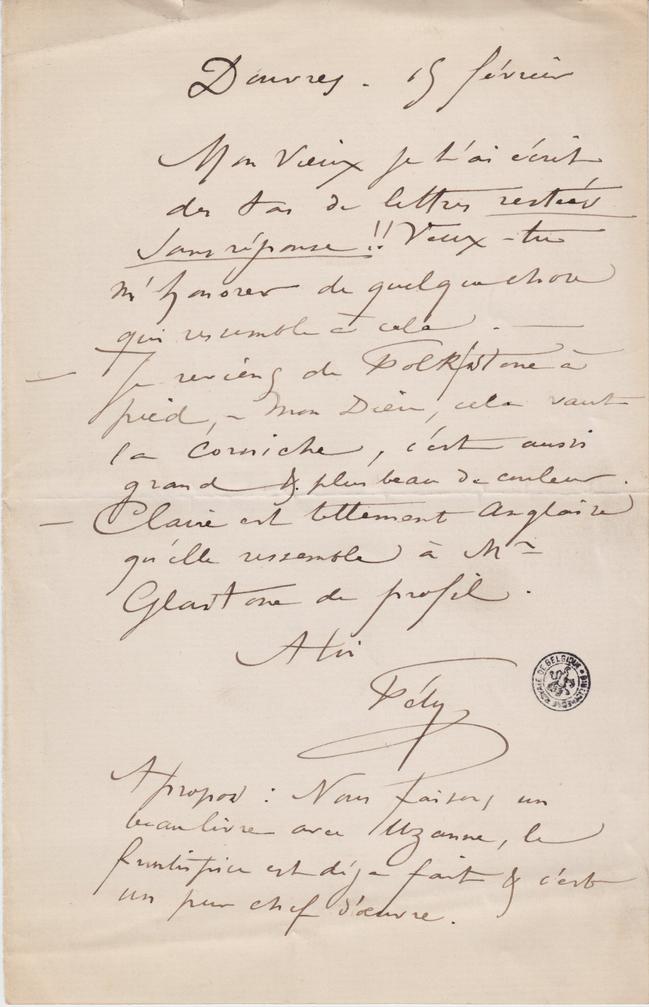 Douvres - 15 février
Mon Vieux je t'ai écrit
des tas de lettres restées
sans réponse!! Veux-tu
m'honorer de quelque chose
qui resemble à cela. —
— Je reviens de Folkestone à
pied, - mon Dieu, cela vaut
la Corniche, c'est aussi
grand & plus beau de couleur.
— Claire est tellement Anglaise
qu'elle ressemble à Mr
Gladstone de profil.
A toi
Fély
BIBLIOTHÈQUE ROYALE DE BELGIQUE
A propos : Nous faisons un
beau livre avec Uzanne, le
frontispice est déja fait & c'est
un pur chef d'œuvre.